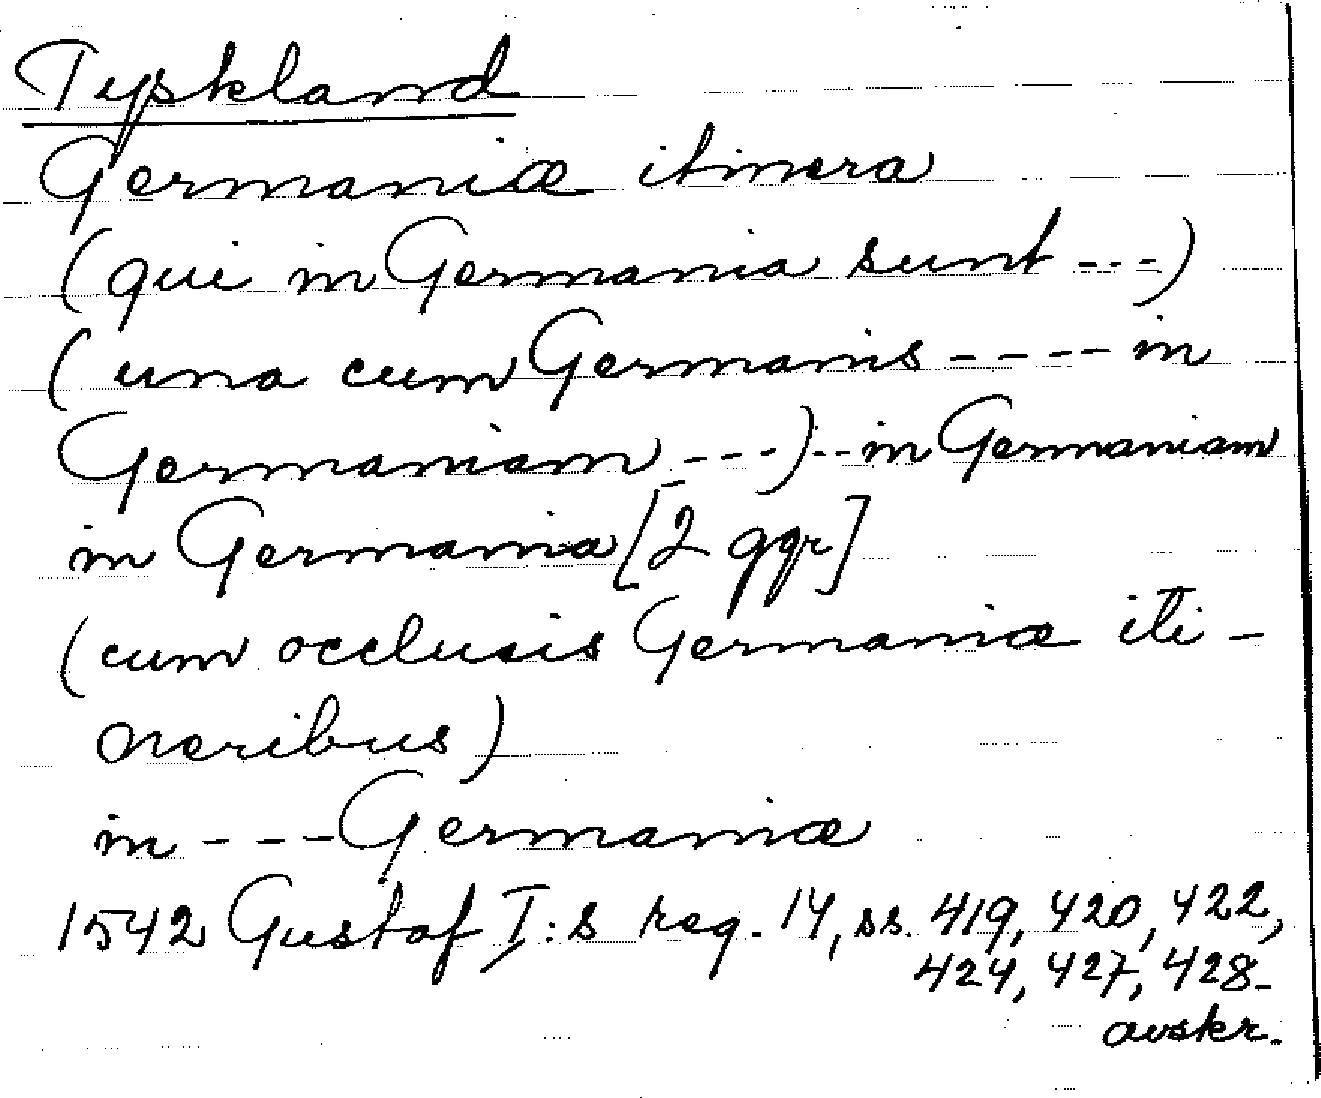 Tyskland
Germaniæ itinera
(qui in Germania sunt ---)
(una cum Germanis ---- in
Germaniam ---)--in Germaniam
in Germania [2 ggr]
(cum occlusis Germaniæ iti-
neribus)
in --- Germaniæ
1542 Gustof I:s reg. 14, ss. 419, 420, 422,
424, 427, 428-
avskr.